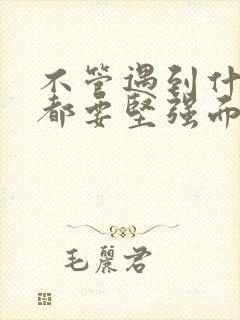 不管遇到什
都要坚强而
毛麗君